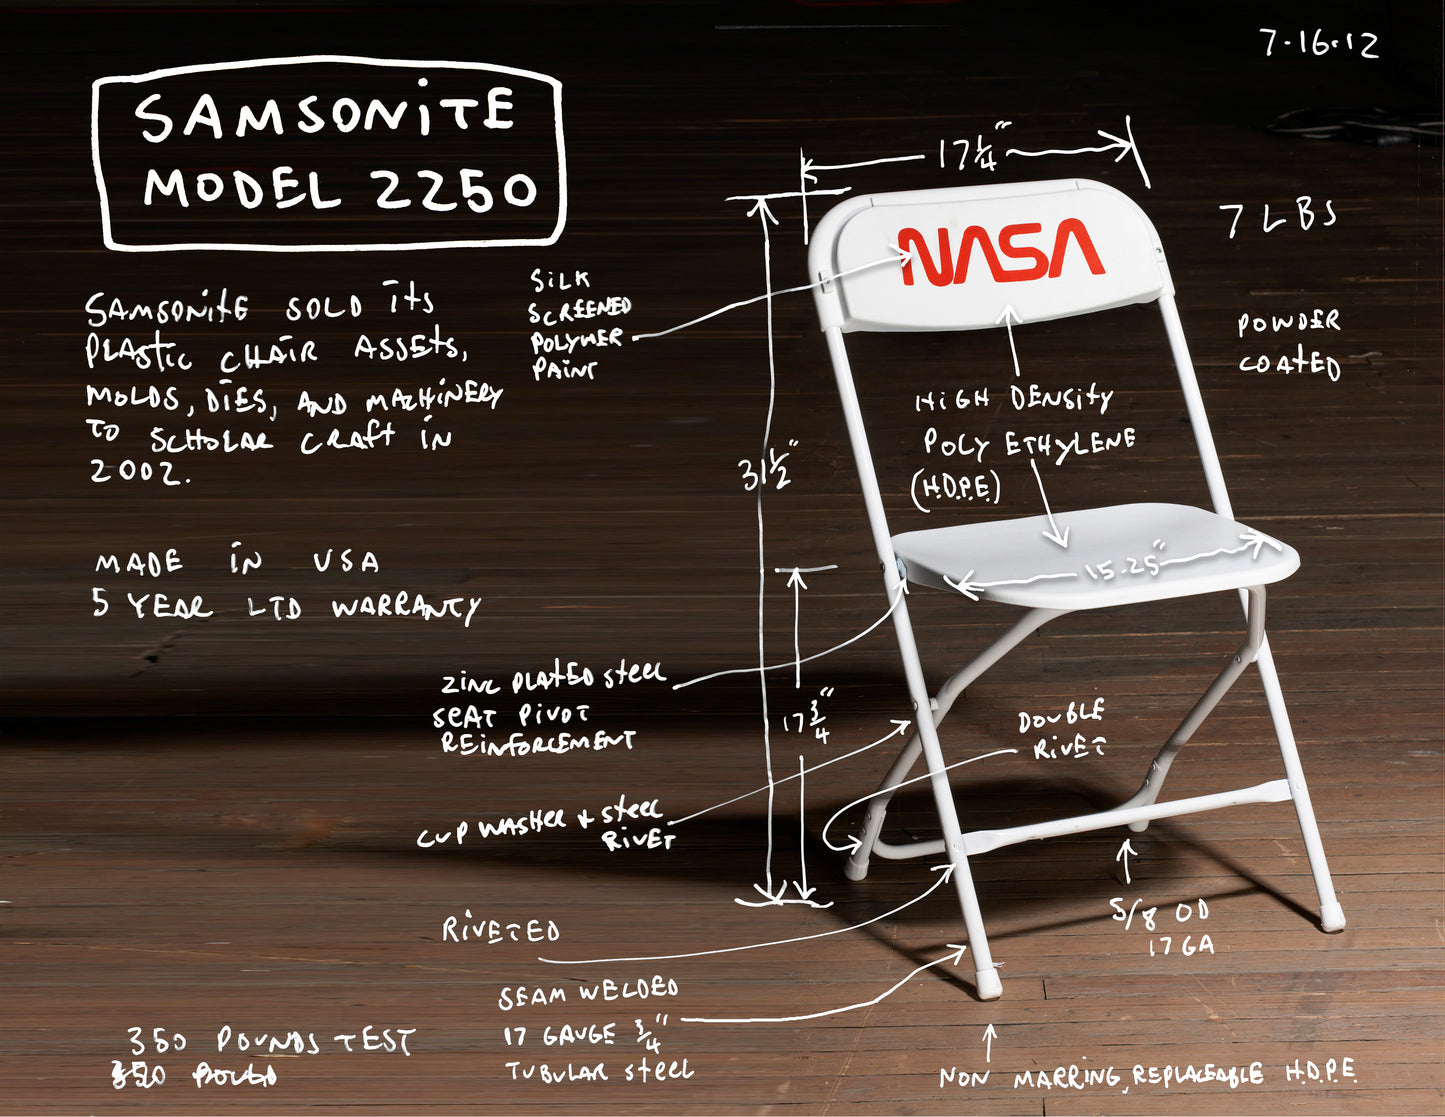 7·16·12
SAMSONiTE
MODEL 2250
17 1/4"
7 LBS
NASA
SAMSONitE SOLD its
PLAStic CHAIR ASSEtS,
MOLDS, DiES, AND MACHiNERY
TO SCHOLAR CRAft iN
2002.
SiLK
SCREENED
POLYMER
PAiNT
POWDER
COAtED
HiGH DENSitY
POLY ETHYLENE
(H.D.P.E.)
31 1/2"
MADE iN USA
5 YEAR LTD WARRANTY
15.25"
ZiNC PLAtED StEEL
SEAT PiVOT
REiNFORCEMENT
17 3/4"
DOUBLE
RiVET
CUP WASHER + StEEL
RiVET
RiVETED
5/8 OD
17 GA
SEAM WELDED
17 GAUGE 3/4"
TUBULAR StEEL
350 POUNDS TEST
NON MARRiNG, REPLACEABLE H.D.P.E.